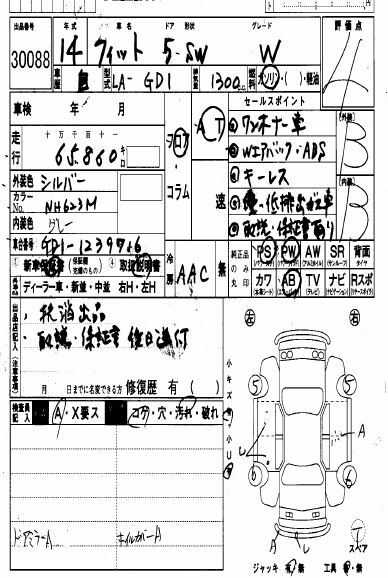 出品番号 年式 車名 ドア 形状 グレード 評価点
30088 14 フィット 5-SW W
車歴 型式 LA-GD1 排気量 1300cc 燃料 ガソリン・( )・軽油
車検 年 月
AT
セールスポイント
① ワンオーナー車
② Wエアバック・ABS
③ キーレス
走行 十万千百十一
65,860 キロ
フロア・コラム 速
外装 B
内装 B
外装色 シルバー
カラーNo. NH623M
内装色 グレー
車台番号 GD1-1239746
冷房 AAC 無
純正品のみ丸印
PS PW AW SR 背面タイヤ
カワ AB TV ナビ Rスポ
新車保証書 取扱説明書
ディーラー車・新並・中並 右H・左H
出品店記入(注意事項)
・抹消出品
・取説・保証書後日送付
月 日までに名変できる方 修復歴 有 ( )
検査員記入 A・X要ス コゲ・穴・汚れ・破れ
左 右
小キズ 小U
5 5
6 6
A
U
ドアミラーA ホイルカバーA
A U
スペア
ジャッキ 有・無 工具 有・無